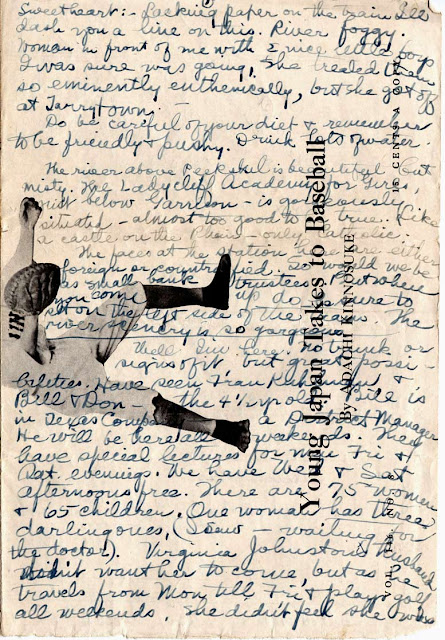 Sweetheart:- Lacking paper on the train I'll
dash you a line on this. River foggy.
Woman in front of me with 2 nice little boys
I was sure was going. She treated them
so eminently euthenically, but she got off
at Tarrytown. -
Do be careful of your diet & remember
to be friendly & pushy. Drink lots of water.
The river above Peekskill is beautiful but
misty. The Ladycliff Academy for Girls,
just below Garrison - is gorgeously
situated - almost too good to be true. Like
a castle on the - only Catholic.
The faces at the station here are either
foreign or countrified. So would we be
as small bank trustees. But when
you come up do be sure to
sit on the left side of the train. The
river scenery is so gorgeous.
Well I'm here. No trunk or
signs of it, but great possi-
bilities. Have seen Fran &
Bill & Don - the 4½ yr old. Bill is
in Texas Company a District Manager
He will be here all weekends. They
have special lectures for men Fri &
Sat. evenings. We have Wed & Sat
afternoons free. There are 75 women
& 65 children. One woman has three
darling ones, (I saw - waiting for
the doctor). Virginia Johnston's husband
didn't want her to come, but as he
travels from Mon till Fri & plays golf
all weekends, she didn't feel she was
Young Japan Takes to Baseball
By ADACHI KINNOSUKE
15 CENTS A COPY